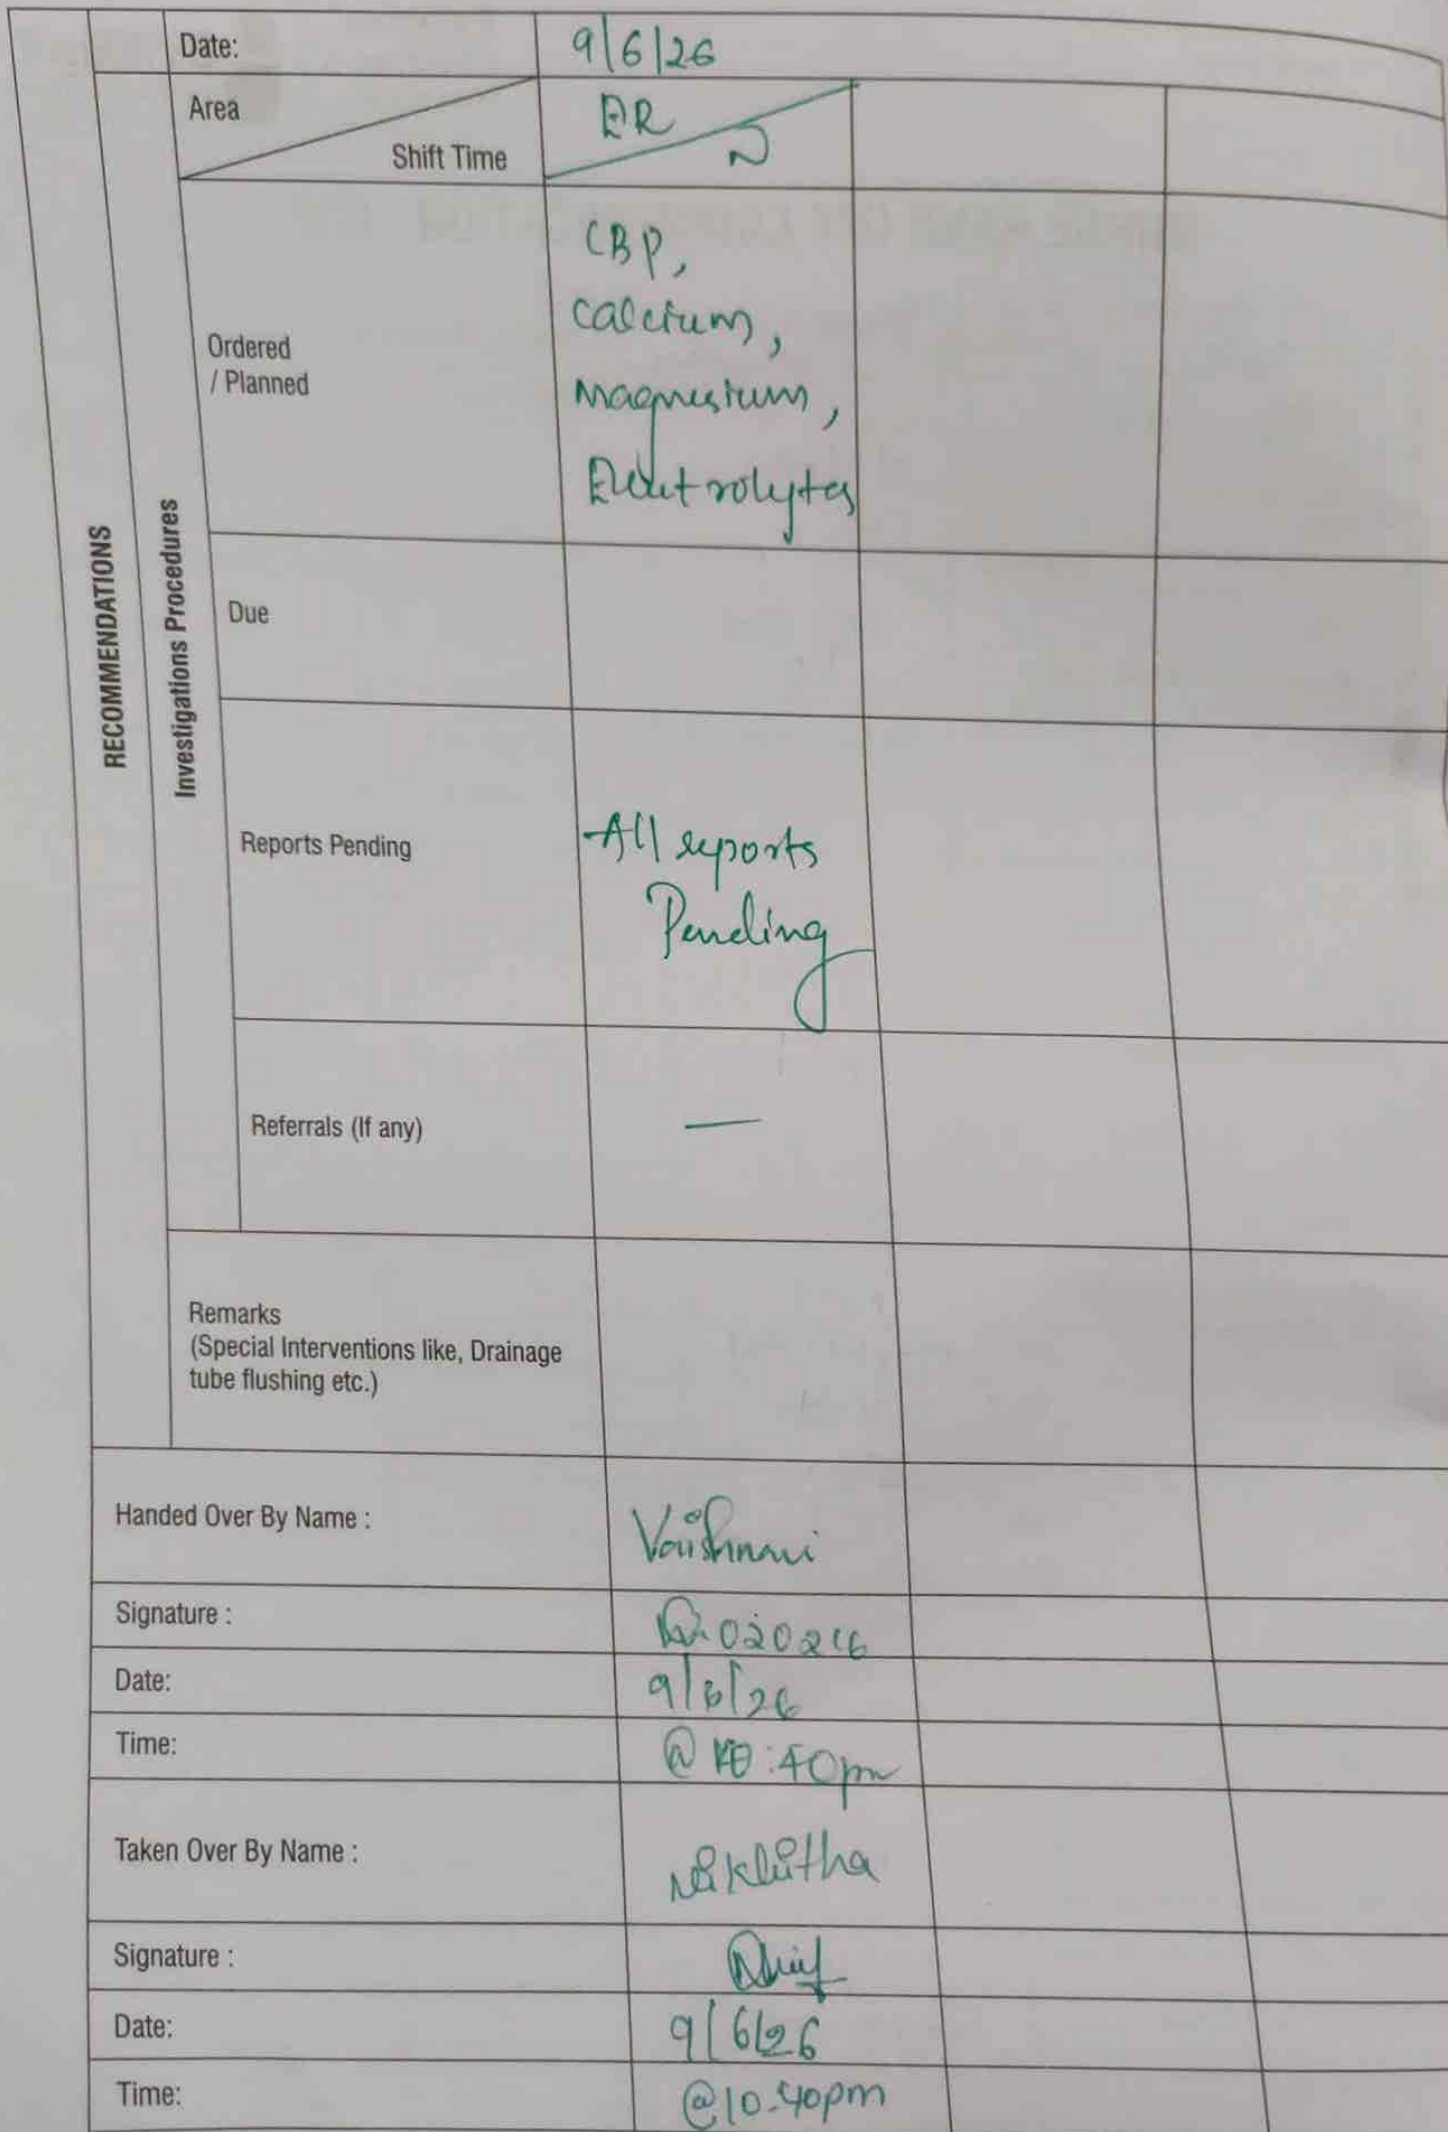 Date: 9/6/26
Area ER
Shift Time N
RECOMMENDATIONS
Investigations Procedures
Ordered
/ Planned
CBP,
Calcium,
Magnesium,
Electrolytes
Due
Reports Pending
All reports
Pending
Referrals (If any) —
Remarks
(Special Interventions like, Drainage
tube flushing etc.)
Handed Over By Name : Vaishnavi
Signature : 020216
Date: 9/6/26
Time: @ 10:40pm
Taken Over By Name : Nikhitha
Signature :
Date: 9/6/26
Time: @10-40pm